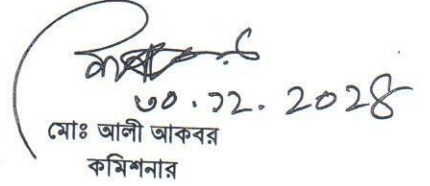 ৩০.১২.২০২৪
মোঃ আলী আকবর
কমিশনার